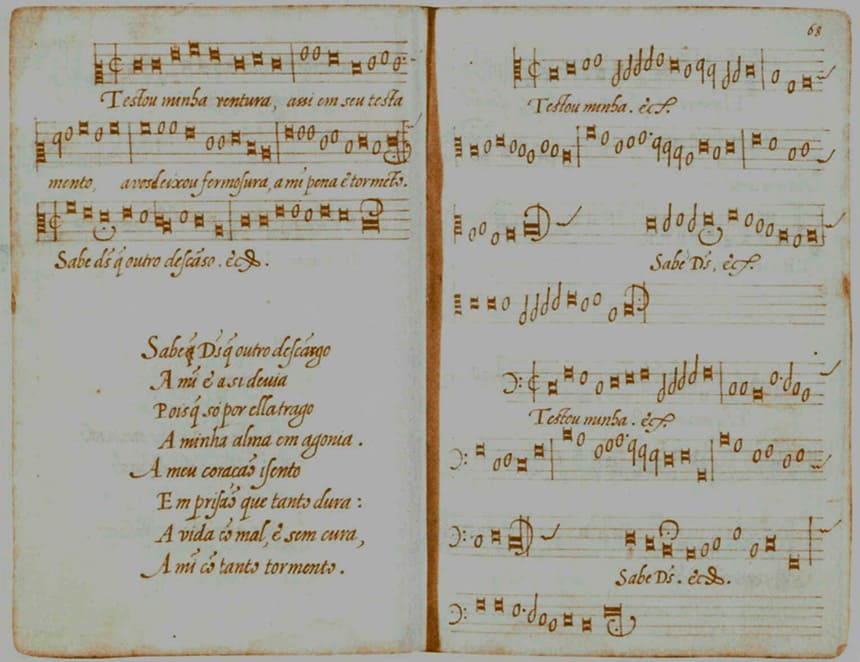 Testou minha ventura, assi em seu testa
mento, a vos deixou fermosura, a mĩ pena e tormẽto.
Sabe ds q̃ outro descãso. &c.
Sabe q̃ Ds q̃ outro descargo
A mĩ e a si devia
Pois q̃ só por ella trago
A minha alma em agonia.
A meu coração isento
Em prisão que tanto dura:
A vida cõ mal, e sem cura,
A mĩ cõ tanto tormento.
68
Testou minha. &c.
Sabe Ds. &c.
Testou minha. &c.
Sabe Ds. &c.